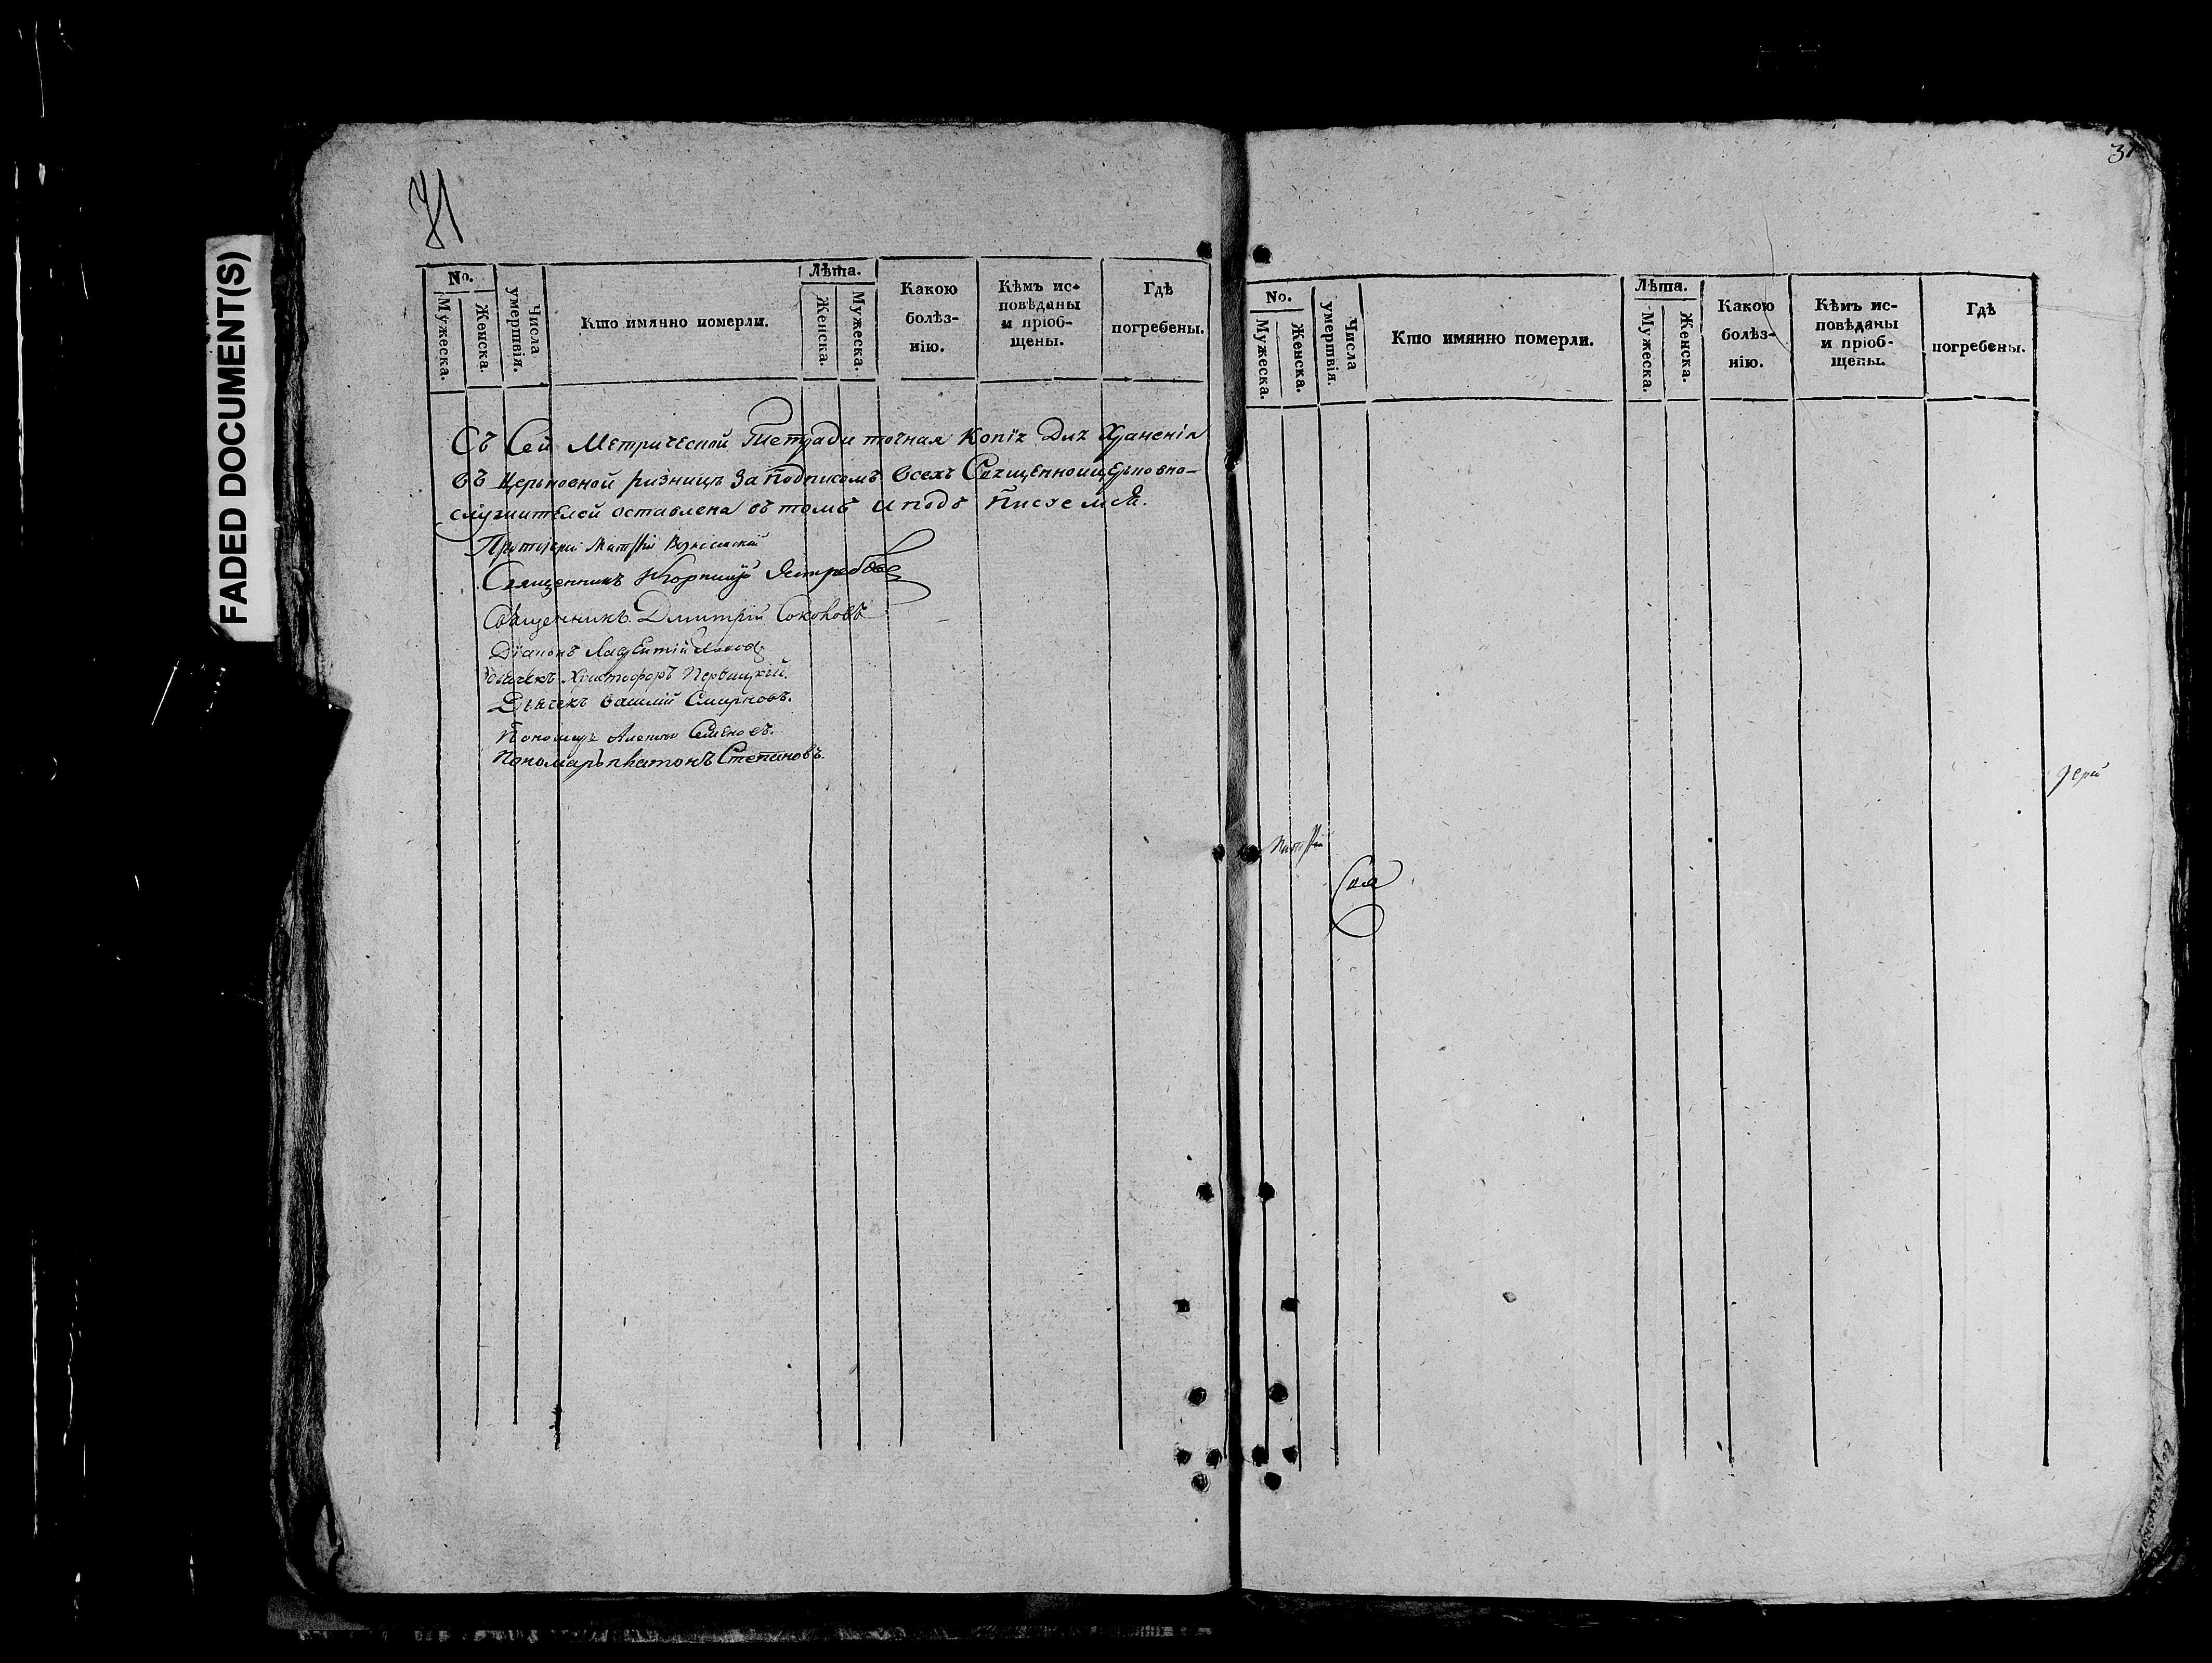 FADED DOCUMENT(S)
No.
Мужеска.
Женска.
Числа умертвія.
Кто имянно померли.
Лѣта.
Женска.
Мужеска.
Какою болѣз-
нію.
Кѣмъ ис-
повѣданы
и пріоб-
щены.
Гдѣ
погребены.
Съ Сей Метрической Тетради точная Копія Для Храненія
въ Церковной ризницѣ За Подписомъ всехъ Священноицерковно-
служителей оставлена въ томъ и подъ писуемся.
Протоіерей Матѳій
Священникъ Ястребовъ
Священникъ Дмитрій Соколовъ
Діаконъ Лаврентій
Дьячекъ Христофоръ
Дьячекъ Василій Смирновъ.
Пономарь Семеновъ.
Пономарь Платонъ Степановъ.
No.
Мужеска.
Женска.
Числа умертвія.
Кто имянно померли.
Лѣта.
Мужеска.
Женска.
Какою
болѣз-
нію.
Кѣмъ ис-
повѣданы
и пріоб-
щены.
Гдѣ
погребены.
іерей
Матѳій